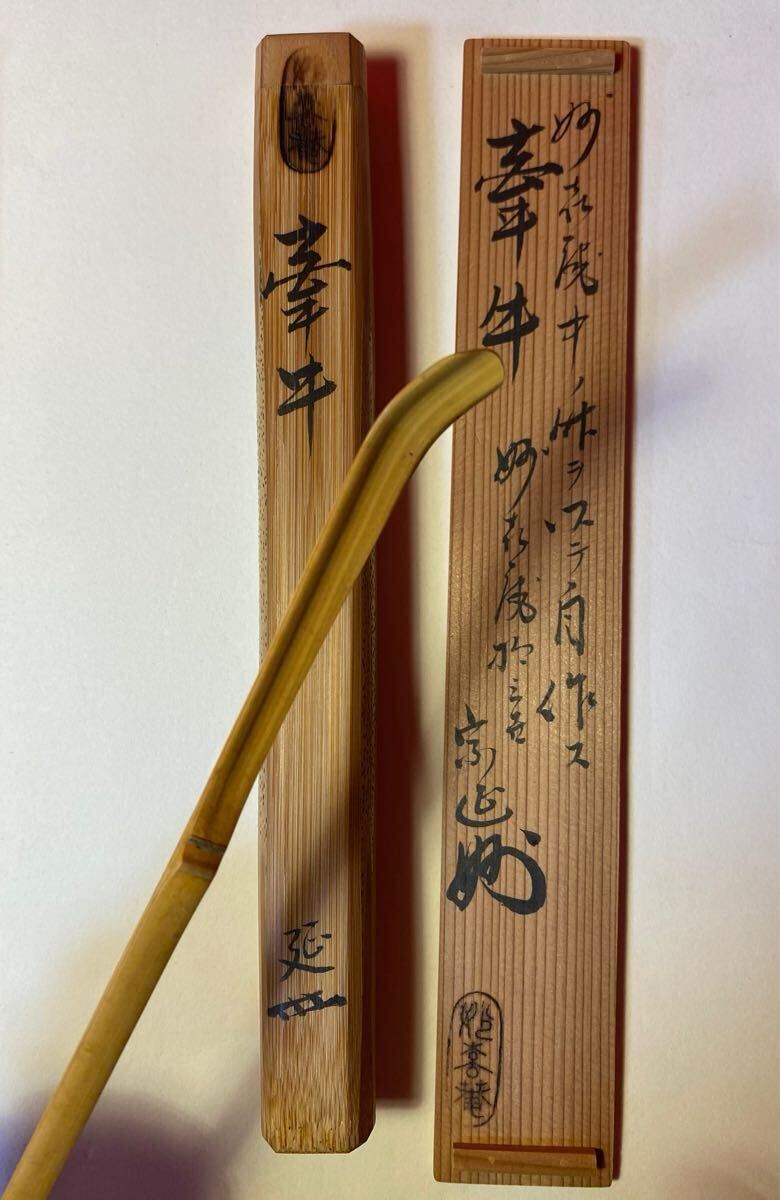 妙喜庵中ノ竹ヲ以テ自作ス
牽牛
妙喜庵
宗延
妙喜庵
妙喜庵
牽牛
延